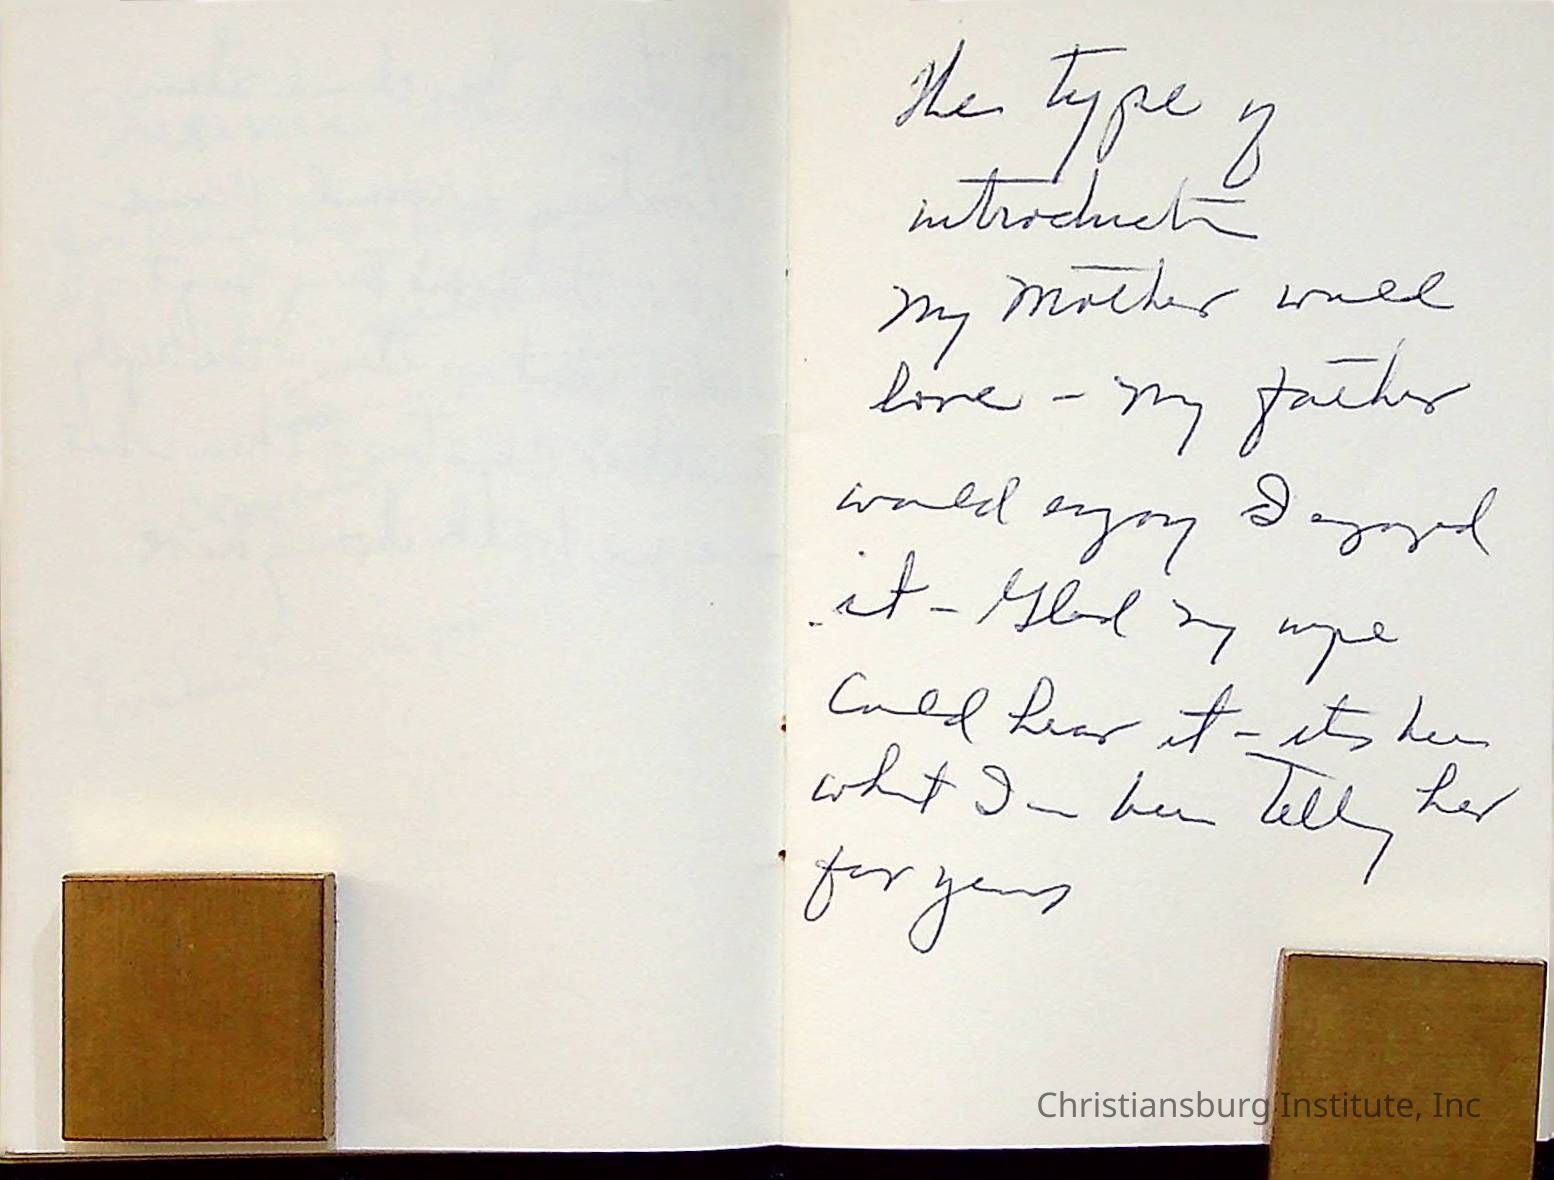 The type of
introductn
my Mother would
love - my father
would enjoy I enjoyed
it - Glad my wife
Could hear it - its been
what I - been Telling her
for years
Christiansburg Institute, Inc